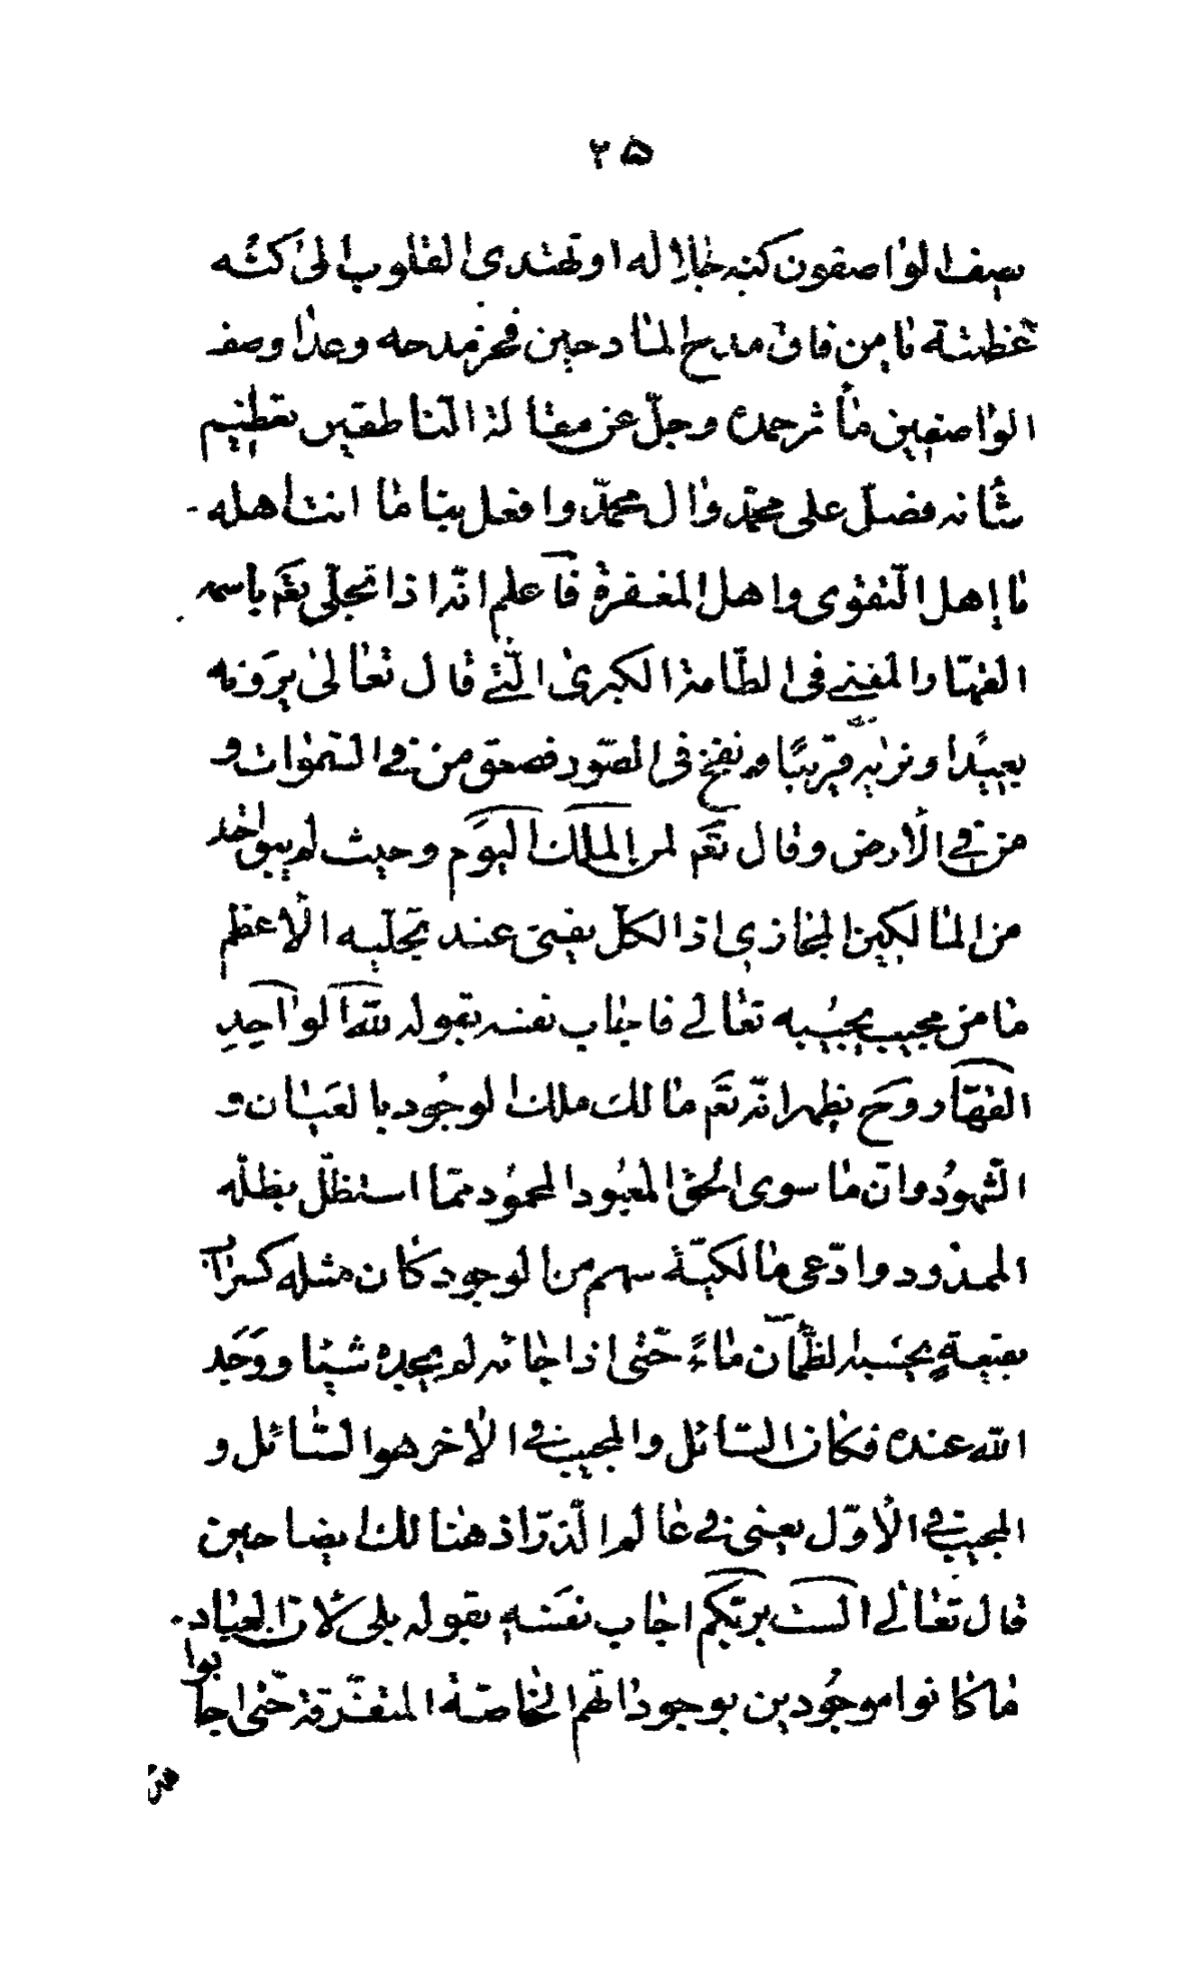 ۲۵
يصف الواصفون كنه جلاله او تهتدى القلوب الى كنه
عظمته يا من فاق مدح المادحين فخر مدحه وعدا وصف
الواصفين مأثر حمده وجلّ عن مقالة الناطقين تعظيم
شأنه فصلّ على محمّد وال محمّد وافعل بنا ما انت اهله
يا اهل التّقوى واهل المغفرة فاعلم انّه اذا تجلّى تعم باسمه
القهّار المفنى فى الطّامة الكبرى الّتى قال تعالى يرونه
بعيدًا ونريه قريبًا ونفخ فى الصّور فصعق من فى السّموات و
من فى الأرض وقال تعم لمن الملك اليوم وحيث لم يبق احد
من المالكين المجازى اذ الكلّ يفنى عند تجلّيه الأعظم
ما من مجيب يجيبه تعالى فاجاب نفسه بقوله للّه الواحدِ
القهّار وح يظهر انّه تعم مالك ملك الوجود بالعيان و
الشّهود وانّ ما سوى الحق المعبود المحمود ممّا استظلّ بظلّه
الممدود وادّعى مالكيّة سهم من الوجود كان مثله كسراب
بقيعةٍ يحسبه الظّمآن ماءً حتّى اذا جائه لم يجده شيئا ووجد
اللّه عنده فكان السّائل والمجيب فى الأخر هو السّائل و
المجيب فى الأوّل يعنى فى عالم الّذرّ اذ هنالك ايضا حين
قال تعالى الست بربّكم اجاب نفسه بقوله بلى لأنّ العباد
ما كانوا موجودين بوجوداتهم الخاصّة المتفرّقة حتّى اجابوا